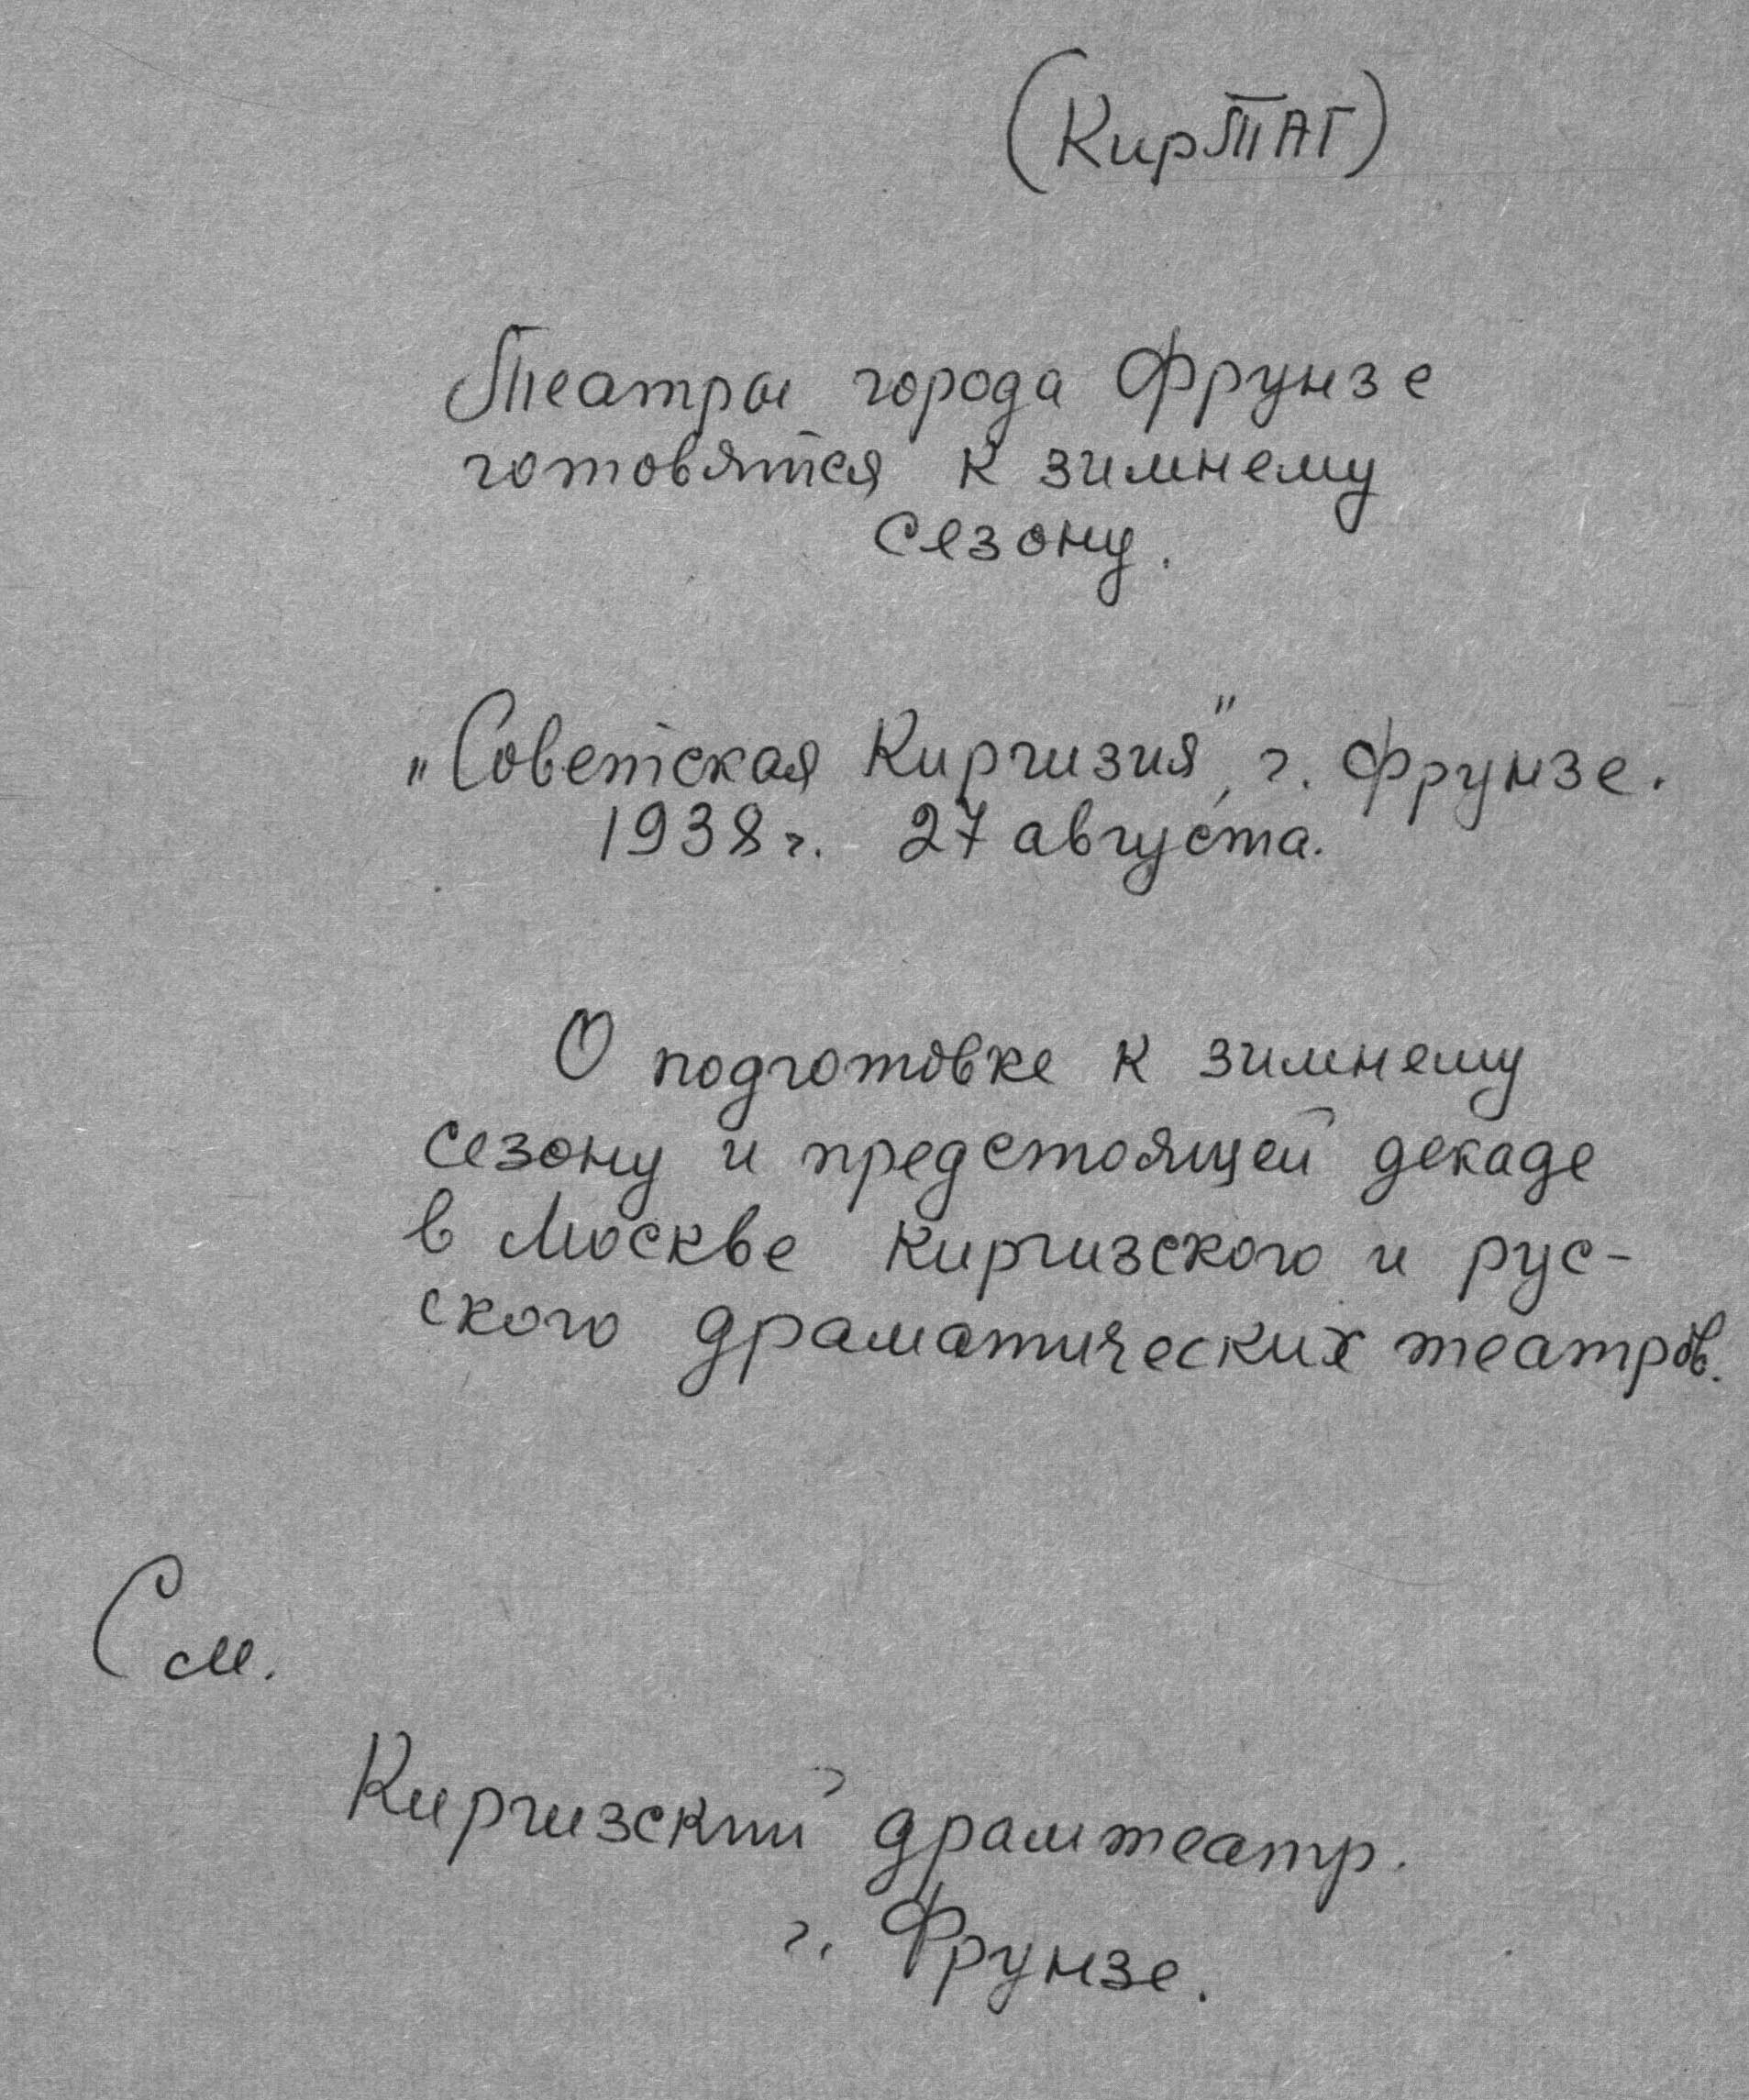 (КирТАГ)
Театры города Фрунзе
готовятся к зимнему
сезону.
„Советская Киргизия", г. Фрунзе.
1938 г. 27 августа.
О подготовке к зимнему
сезону и предстоящей декаде
в Москве киргизского и рус-
ского драматических театров.
См.
Киргизский драмтеатр.
г. Фрунзе.